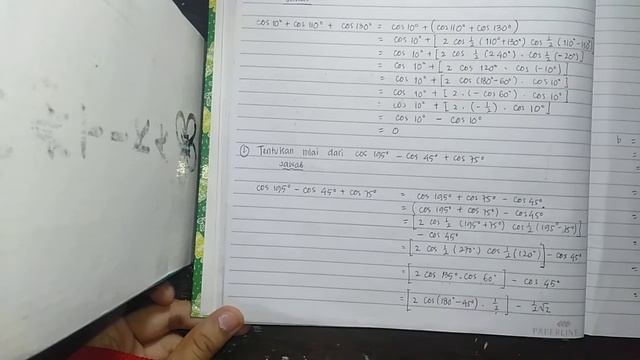 Jawab
cos 10° + cos 110° + cos 130° = cos 10° + (cos 110° + cos 130°)
= cos 10° + [2 cos ½ (110°+130°) cos ½ (110°-130°)]
= cos 10° + [2 cos ½ (240°) · cos ½ (-20°)]
= cos 10° + [2 cos 120° · cos (-10°)]
= cos 10° + [2 cos (180°-60°) · cos 10°]
= cos 10° + [2 · (-cos 60°) · cos 10°]
= cos 10° + [2 · (-½) · cos 10°]
= cos 10° - cos 10°
= 0
Tentukan nilai dari cos 195° - cos 45° + cos 75°
Jawab
cos 195° - cos 45° + cos 75° = cos 195° + cos 75° - cos 45°
= (cos 195° + cos 75°) - cos 45°
= [2 cos ½ (195°+75°) cos ½ (195°-75°)]
- cos 45°
= [2 cos ½ (270°) cos ½ (120°)] - cos 45°
= [2 cos 135° · cos 60°] - cos 45°
= [2 cos (180°-45°) · ½] - ½√2
PAPERLINE
b =